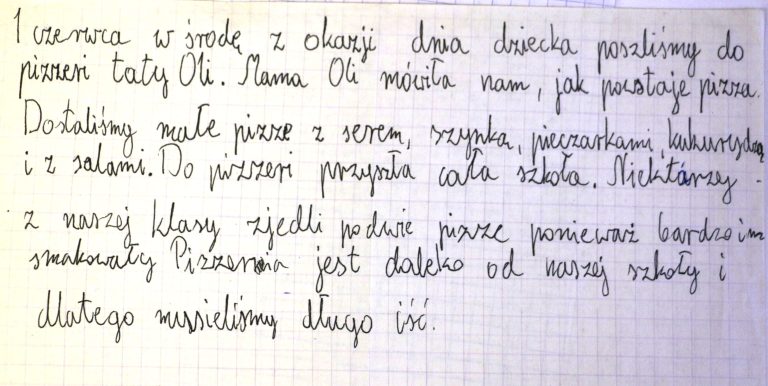 1 czerwca w środę z okazji dnia dziecka poszliśmy do
pizzeri taty Oli. Mama Oli mówiła nam, jak powstaje pizza.
Dostaliśmy małe pizze z serem, szynką, pieczarkami, kukurydzą
i z salami. Do pizzeri przyszła cała szkoła. Niektórzy
z naszej klasy zjedli podwie pizze ponieważ bardzo im
smakowały Pizzernia jest daleko od naszej szkoły i
dlatego mussieliśmy długo iść.